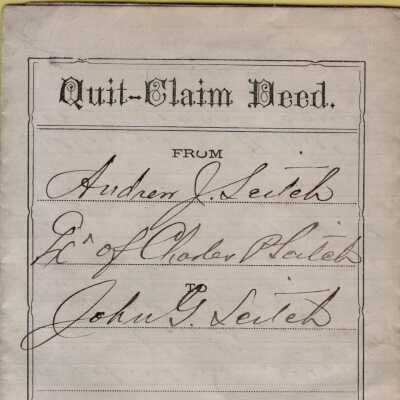 Quit-Claim Deed.
FROM
Andrew J. Leitch
Ex^r of Charles P Leitch
TO
John G. Leitch